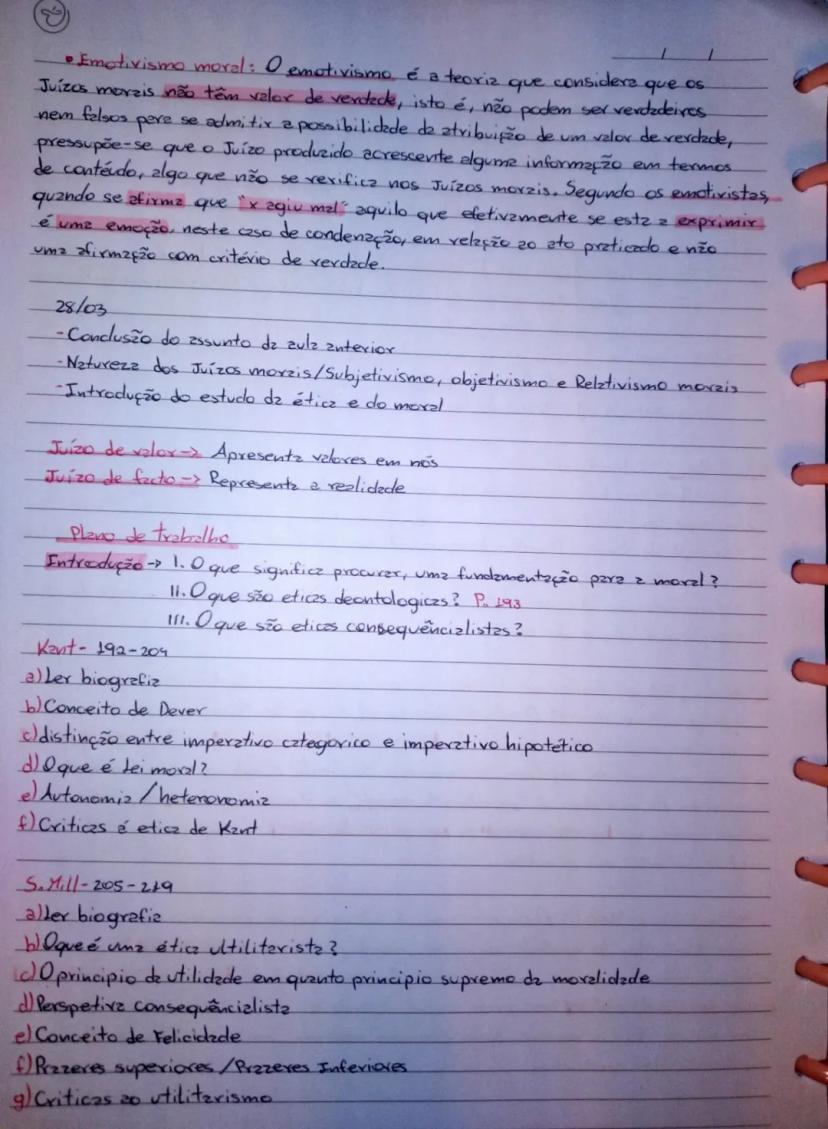 / /
• Emotivismo moral: O emotivismo é a teoria que considera que os
Juízos morais não têm valor de verdade, isto é, não podem ser verdadeiros
nem falsos para se admitir a possibilidade da atribuição de um valor de verdade,
pressupõe-se que o Juízo produzido acrescente alguma informação em termos
de contéudo, algo que não se verifica nos Juízos morais. Segundo os emotivistas,
quando se afirma que "x agiu mal" aquilo que efetivamente se esta a exprimir
é uma emoção, neste caso de condenação, em relação ao ato praticado e não
uma afirmação com critério de verdade.
28/03
- Conclusão do assunto da aula anterior
- Natureza dos Juízos morais/Subjetivismo, objetivismo e Relativismo morais
- Introdução do estudo da ética e do moral
Juízo de valor -> Apresenta valores em nós
Juízo de facto -> Representa a realidade
Plano de trabalho
Introdução -> I. O que significa procurar, uma fundamentação para a moral?
II. O que são eticas deontologicas? P. 193
III. O que são eticas consequêncialistas?
Kant - 192-204
a) Ler biografia
b) Conceito de Dever
c) distinção entre imperativo categorico e imperativo hipotético
d) O que é Lei moral?
e) Autonomia / heteronomia
f) Criticas é etica de Kant
S. Mill - 205-219
a) Ler biografia
b) O que é uma ética Utilitarista?
c) O principio da utilidade em quanto principio supremo da moralidade
d) Perspetiva consequêncialista
e) Conceito de Felicidade
f) Prazeres superiores / Prazeres Inferiores
g) Criticas ao utilitarismo